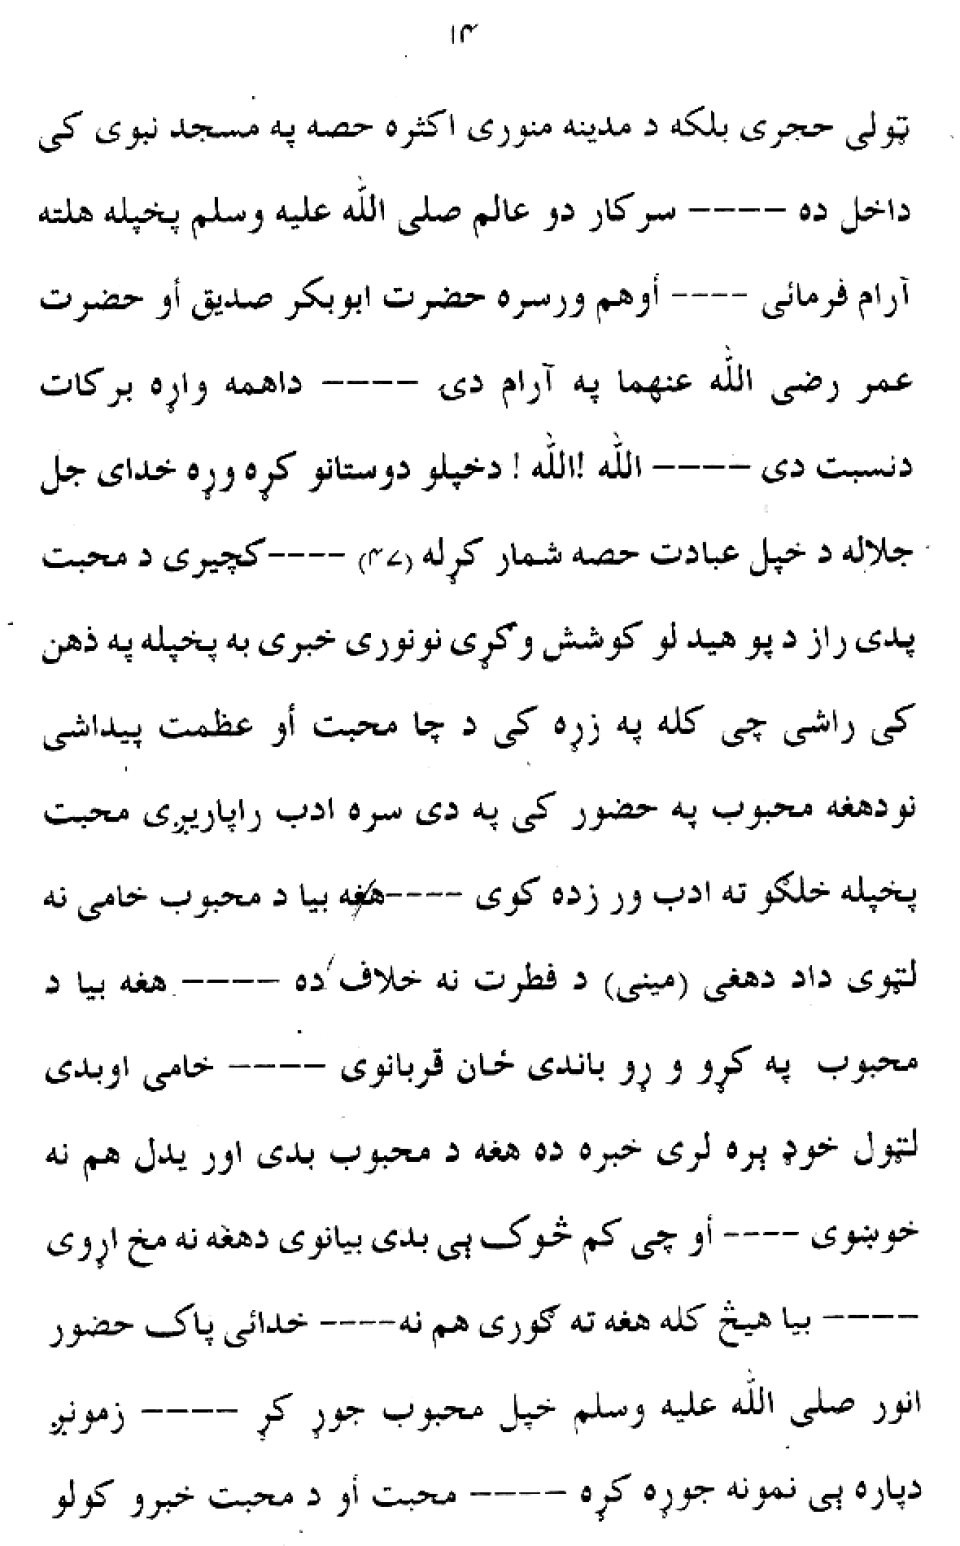 ۱۴
ټولی حجری بلکه د مدینه منوری اکثره حصه په مسجد نبوی کی
داخل ده ---- سرکار دو عالم صلی الله علیه وسلم پخپله هلته
آرام فرمائی ---- أوهم ورسره حضرت ابوبکر صدیق أو حضرت
عمر رضی الله عنهما په آرام دی ---- داهمه واړه برکات
دنسبت دی ---- الله !الله ! دخپلو دوستانو کړه وړه خدای جل
جلاله د خپل عبادت حصه شمار کړله (۴۷) ----کچیری د محبت
پدی راز د پو هید لو کوشش وکړی نو نوری خبری به پخپله په ذهن
کی راشی چی کله په زړه کی د چا محبت أو عظمت پیداشی
نودهغه محبوب په حضور کی په دی سره ادب راپاریږی محبت
پخپله خلګو ته ادب ور زده کوی ----هغه بیا د محبوب خامی نه
لټوی داد دهغی (مینی) د فطرت نه خلاف ده ---- هغه بیا د
محبوب په کړو و ړو باندی ځان قربانوی ---- خامی اوبدی
لټول خوډ ېره لری خبره ده هغه د محبوب بدی اور یدل هم نه
خوښوی ---- أو چی کم څوک ېی بدی بیانوی دهغه نه مخ اړوی
---- بیا هیڅ کله هغه ته ګوری هم نه---- خدائی پاک حضور
انور صلی الله علیه وسلم خپل محبوب جوړ کړ ---- زمونږ
دپاره ېی نمونه جوړه کړه ---- محبت أو د محبت خبرو کولو